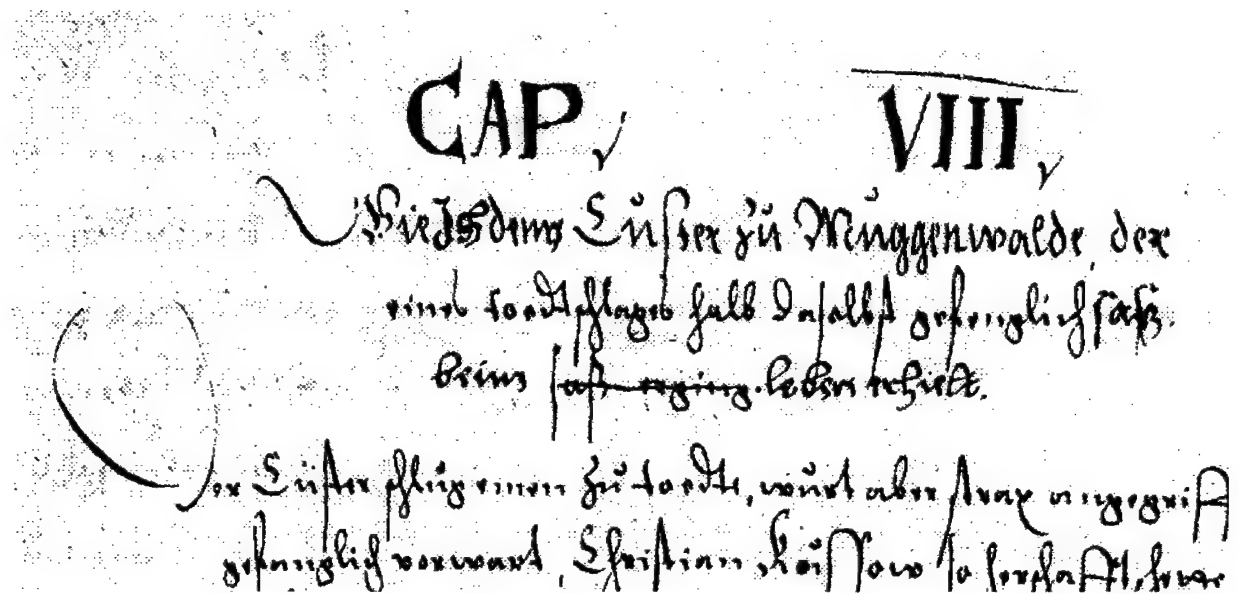 CAP. VIII.
Wie Js dem Cüster zu Muggenwalde, der
eines todtschlages halb daselbst gefenglich saß.
beim saß erging. leben erhielt.
Der Cüster schlug einen zu todte, wurt aber strax angegriff
gefanglich vorwart, Christian Küssow so